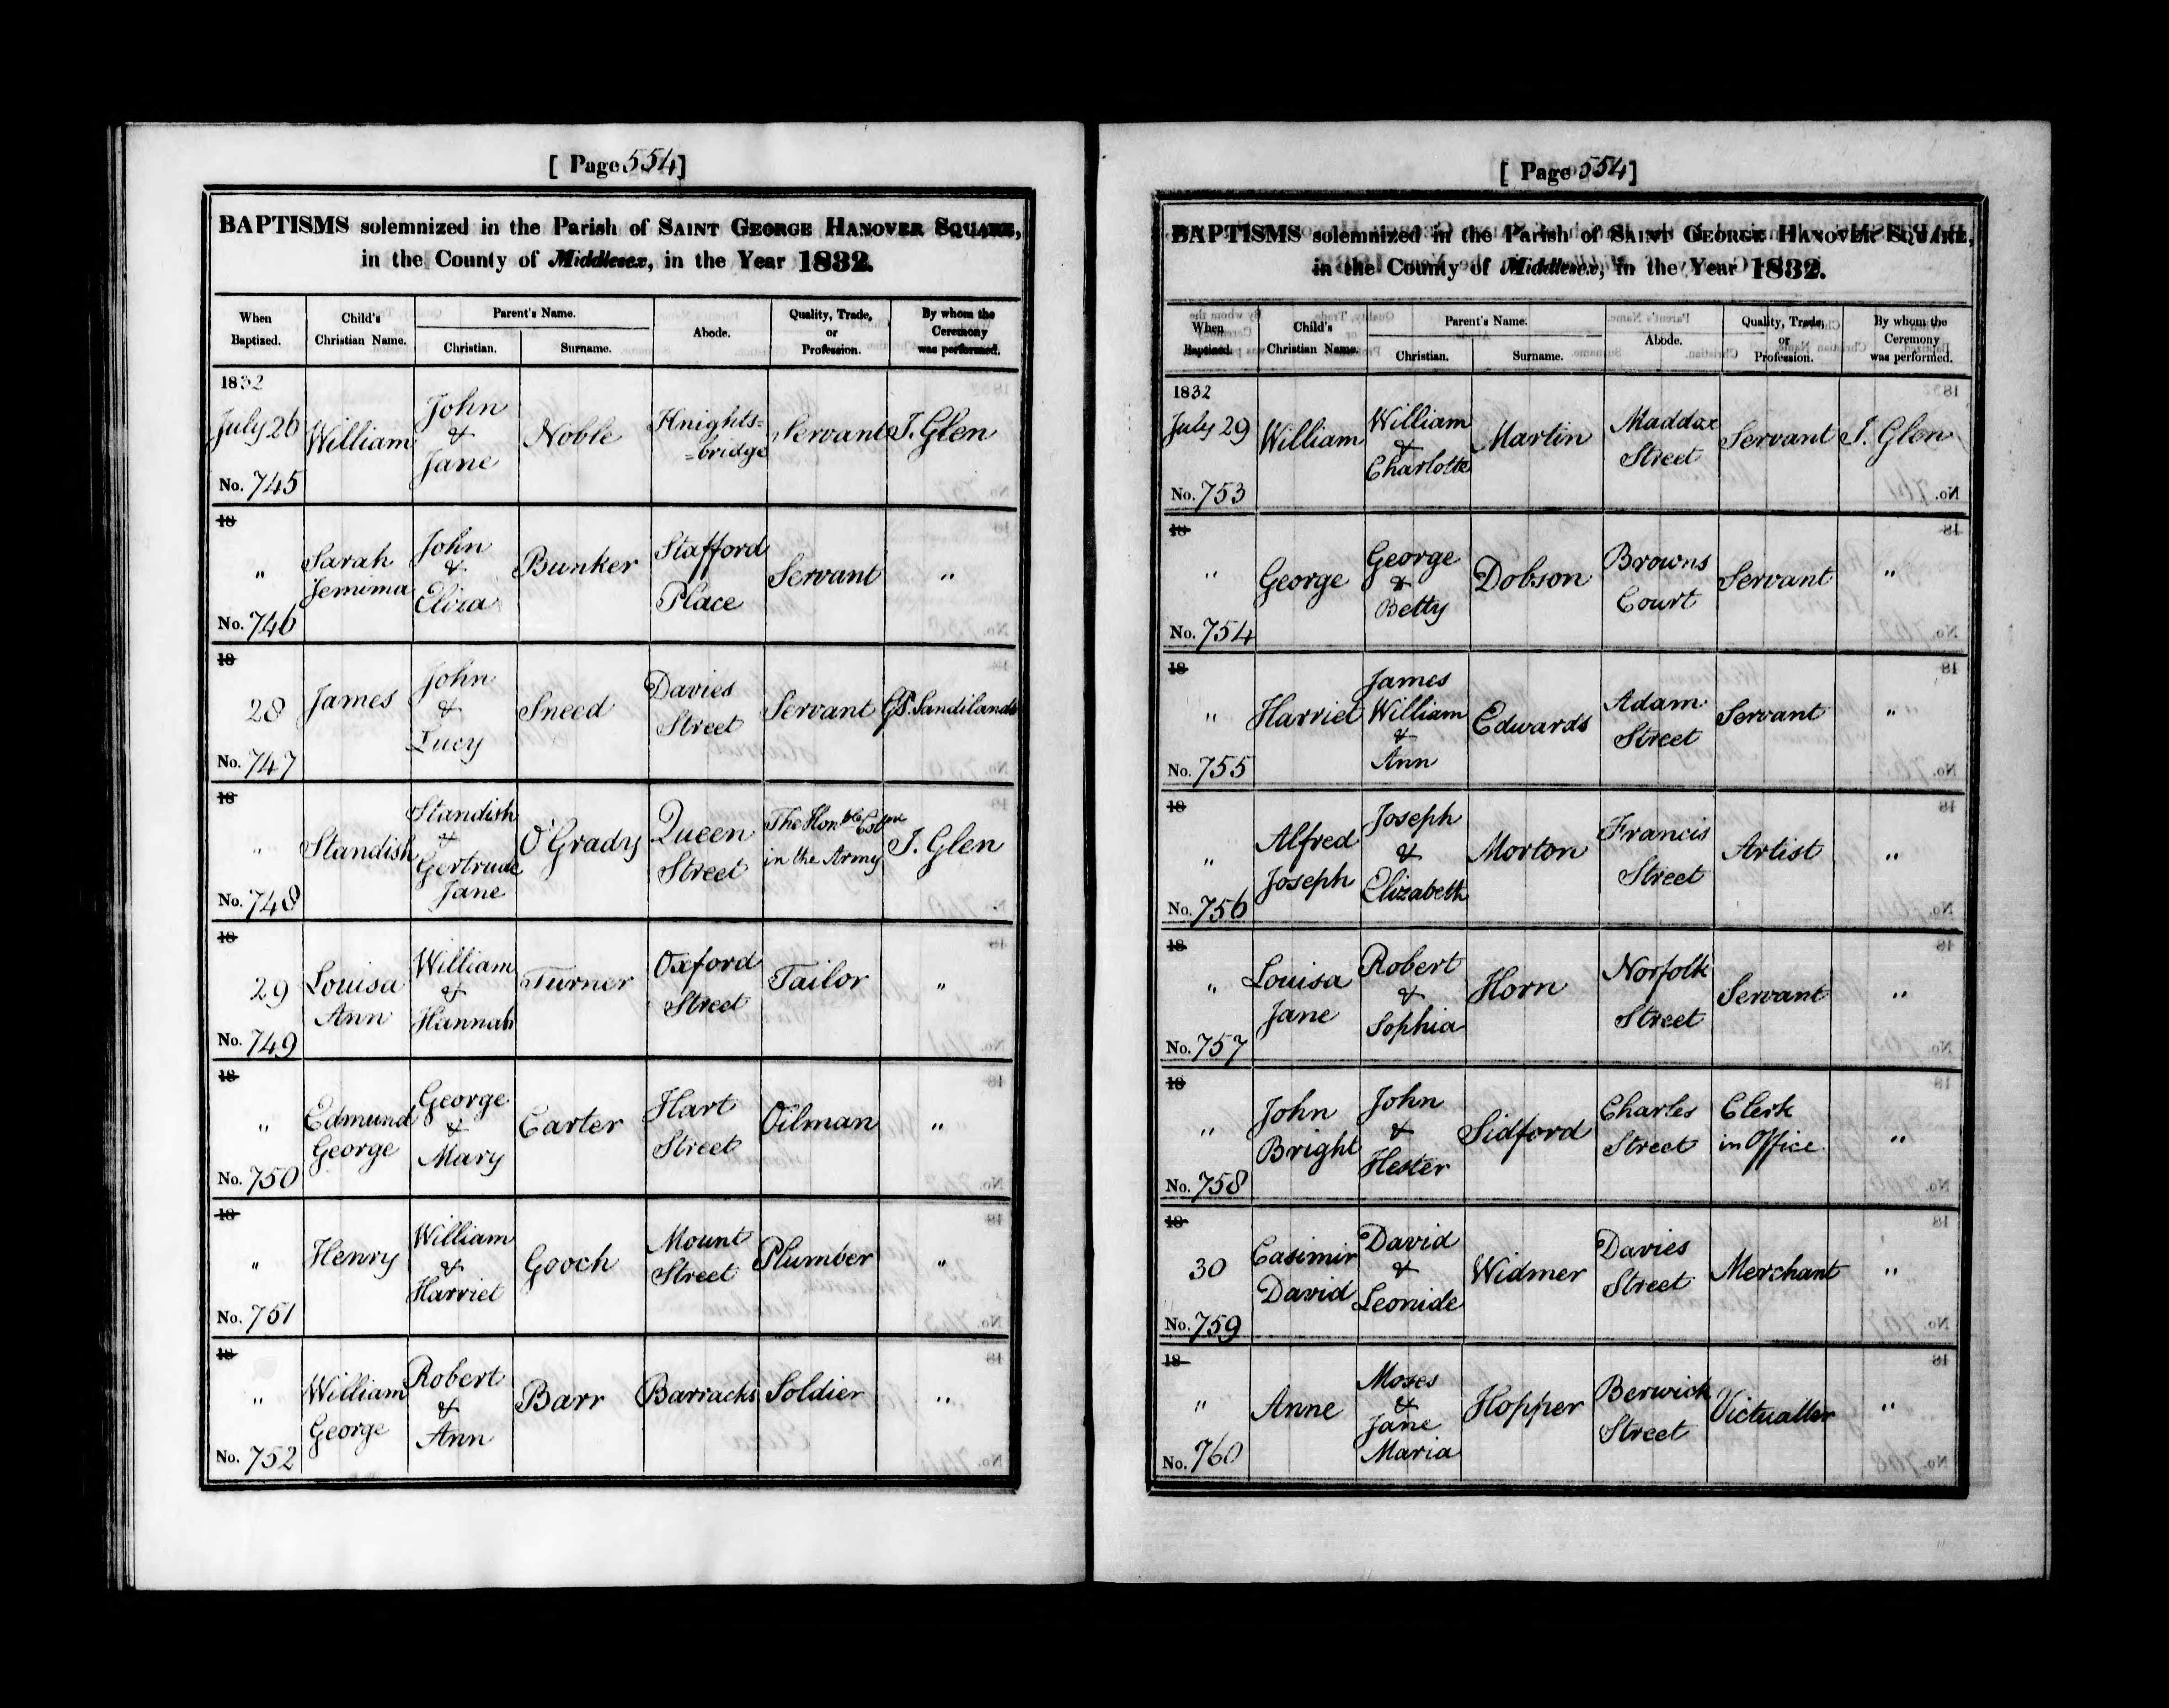 [ Page 554]
BAPTISMS solemnized in the Parish of SAINT GEORGE HANOVER SQUARE,
in the County of Middlesex, in the Year 1832.
When Baptized. Child's Christian Name. Parent's Name. Christian. Surname. Abode. Quality, Trade, or Profession. By whom the Ceremony was performed.
1832
July 26 William John & Jane Noble Knights= =bridge Servant J. Glen
No. 745
18
" Sarah Jemima John & Eliza Bunker Stafford Place Servant "
No. 746
18
28 James John & Lucy Sneed Davies Street Servant G.P. Sandilands
No. 747
18
" Standish Standish & Gertrude Jane O'Grady Queen Street The Honble Colone in the Army J. Glen
No. 748
18
29 Louisa Ann William & Hannah Turner Oxford Street Tailor "
No. 749
18
" Edmund George George & Mary Carter Hart Street Oilman "
No. 750
18
" Henry William & Harriet Gooch Mount Street Plumber "
No. 751
18
" William George Robert & Ann Barr Barracks Soldier "
No. 752
[ Page 554]
BAPTISMS solemnized in the Parish of SAINT GEORGE HANOVER SQUARE,
in the County of Middlesex, in the Year 1832.
When Baptized. Child's Christian Name. Parent's Name. Christian. Surname. Abode. Quality, Trade, or Profession. By whom the Ceremony was performed.
1832
July 29 William William & Charlotte Martin Maddox Street Servant J. Glen
No. 753
18
" George George & Betty Dobson Browns Court Servant "
No. 754
18
" Harriet James William & Ann Edwards Adam Street Servant "
No. 755
18
" Alfred Joseph Joseph & Elizabeth Morton Francis Street Artist "
No. 756
18
" Louisa Jane Robert & Sophia Horn Norfolk Street Servant "
No. 757
18
" John Bright John & Hester Sidford Charles Street Clerk in Office "
No. 758
18
30 Casimir David David & Leonide Widmer Davies Street Merchant "
No. 759
18
" Anne Moses & Jane Maria Hopper Berwick Street Victualler "
No. 760